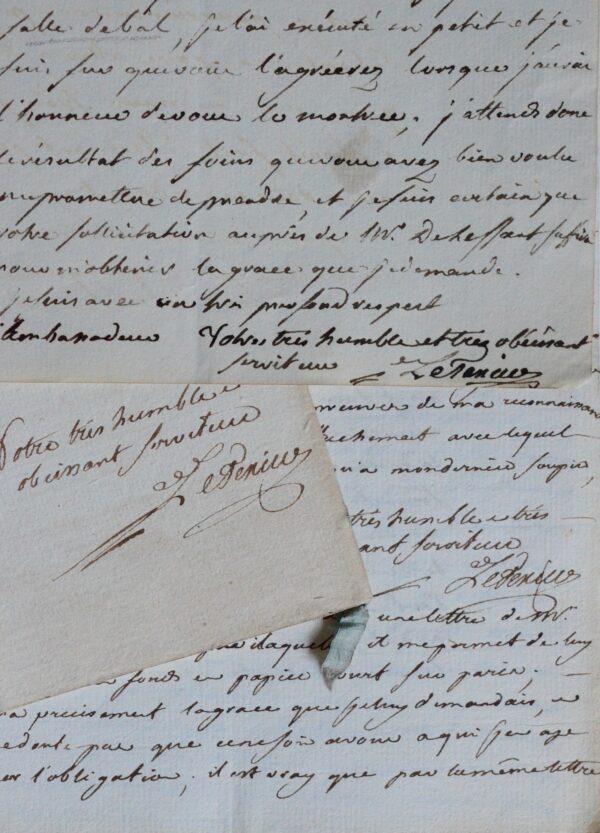 salle de bal, je l'ai exécuté en petit et je
suis sur que vous l'agréerez lorsque j'aurai
l'honneur de vous le montrer. j'attends donc
le résultat des soins que vous avez bien voulu
me promettre de prendre, et je suis certain que
votre sollicitation auprès de Mr. Delessart suffira
pour m'obtenir la grace que je demande.
je suis avec un très profond respect
Votre très humble et très obeissant
serviteur
Votre très humble e
obeissant serviteur
de ma reconnaissan
avec lequel
mon dernier soupir,
très humble e très
ant serviteur
une lettre de Mr.
laquel il me permet de luy
fonds en papier court sur paris;
precisement la grace que je luy demandais, e
pas que ce ne soit a vous a qui j'en aye
l'obligation; il est vray que par la même lettre